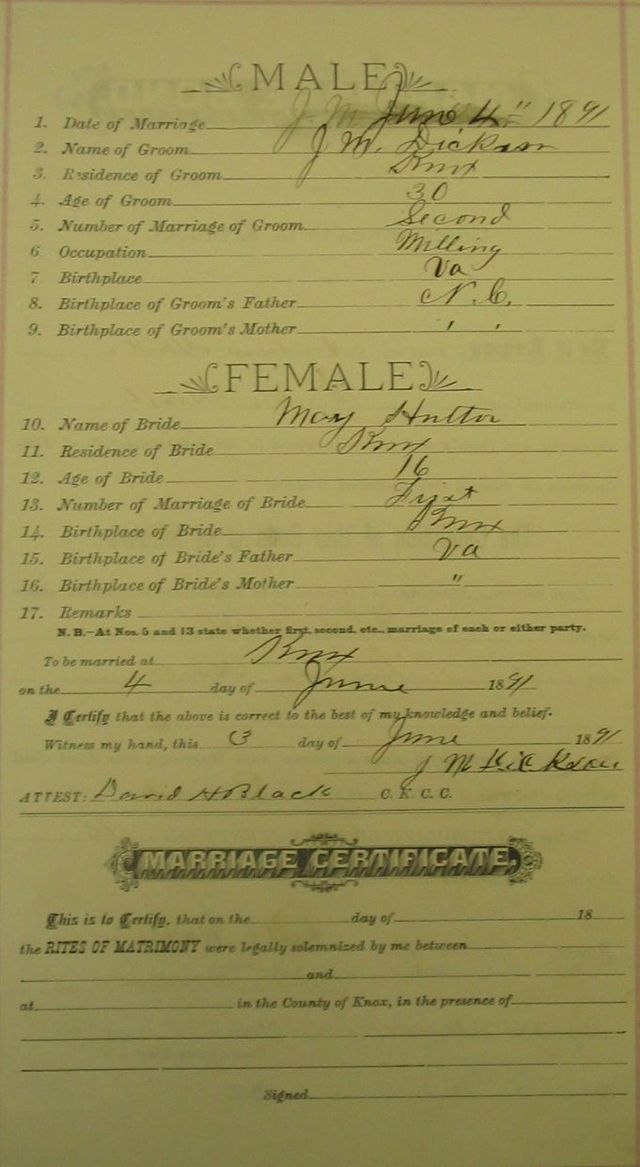 MALE
1. Date of Marriage June 4" 1891
2. Name of Groom J. M. Dickson
3. Residence of Groom Knox
4. Age of Groom 30
5. Number of Marriage of Groom Second
6 Occupation Milling
7 Birthplace Va
8. Birthplace of Groom's Father N. C.
9. Birthplace of Groom's Mother " "
FEMALE
10. Name of Bride May
11. Residence of Bride Knox
12. Age of Bride 16
13. Number of Marriage of Bride First
14. Birthplace of Bride Knox
15. Birthplace of Bride's Father Va
16. Birthplace of Bride's Mother "
17. Remarks
N. B.—At Nos. 5 and 13 state whether first, second, etc., marriage of each or either party.
To be married at Knox
on the 4 day of June 1891
I Certify that the above is correct to the best of my knowledge and belief.
Witness my hand, this 3 day of June 1891
J M Dickson
ATTEST: David H Black C. K. C. C.
MARRIAGE CERTIFICATE.
This is to Certify, that on the day of 18
the RITES OF MATRIMONY were legally solemnized by me between
and
at in the County of Knox, in the presence of
Signed